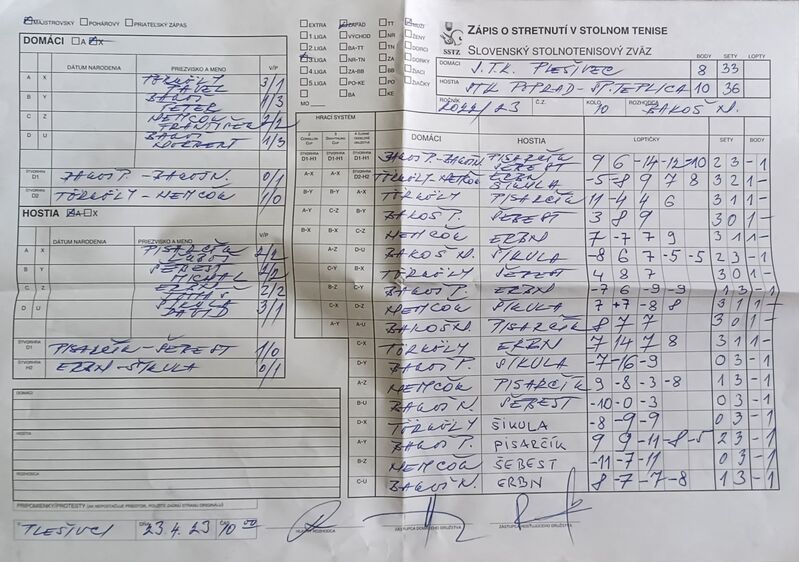 MAJSTROVSKÝ POHÁROVÝ PRIATEĽSKÝ ZÁPAS
DOMÁCI A X
DÁTUM NARODENIA PRIEZVISKO A MENO V/P
A X TÖRKÖLY PAVEL 3/1
B Y BAKOŠ PETER 1/3
C Z NEMČOK FRANTIŠEK 2/2
D U BAKOŠ NORBERT 1/3
ŠTVORHRA D1 BAKOŠ P. - BAKOŠ N. 0/1
ŠTVORHRA D2 TÖRKÖLY - NEMČOK 1/0
HOSTIA A X
DÁTUM NARODENIA PRIEZVISKO A MENO V/P
A X PISARČÍK ĽUBOŠ 2/2
B Y ŠEBEST MICHAL 2/2
C Z ERBN 2/2
D U ŠIKULA DAVID 3/1
ŠTVORHRA D1 PISARČÍK - ŠEBEST 1/0
ŠTVORHRA H2 ERBN - ŠIKULA 0/1
DOMÁCI
HOSTIA
ROZHODCA
PRIPOMIENKY/PROTESTY
PLEŠIVCI DŇA 23.4.23 ČAS 10 00
HLAVNÝ ROZHODCA
ZÁSTUPCA DOMÁCEHO DRUŽSTVA
ZÁSTUPCA HOSŤUJÚCEHO DRUŽSTVA
EXTRA ZÁPAD TT MUŽI
1. LIGA VÝCHOD NR ŽENY
2. LIGA BA-TT TN DORCI
3. LIGA NR-TN ZA DORKY
4. LIGA ZA-BB BB ŽIACI
5. LIGA PO-KE PO ŽIAČKY
MO BA KE
SSTZ
ZÁPIS O STRETNUTÍ V STOLNOM TENISE
SLOVENSKÝ STOLNOTENISOVÝ ZVÄZ
BODY SETY LOPTY
DOMÁCI J.T.K. PLEŠIVEC 8 33
HOSTIA STK POPRAD - ŠT. TEPLICA 10 36
ROČNÍK 2022/23 Č.Z. KOLO 10 ROZHODCA BAKOŠ N.
HRACÍ SYSTÉM
DOMÁCI HOSTIA LOPTIČKY SETY BODY
D1-H1 D1-H1 D1-H1 BAKOŠ P.-BAKOŠ N. PISARČÍK ŠEBEST 9 6 -14 -12 -10 2 3 - 1
A-X A-X D2-H2 TÖRKÖLY-NEMČOK ERBN ŠIKULA -5 -8 9 7 8 3 2 1 -
B-Y B-Y A-X TÖRKÖLY PISARČÍK 11 -4 4 6 3 1 1 -
A-Y C-Z B-Y BAKOŠ P. ŠEBEST 3 8 9 3 0 1 -
B-X B-X C-Z NEMČOK ERBN 7 -7 7 9 3 1 1 -
A-Z D-U BAKOŠ N. ŠIKULA -8 6 7 -5 -5 2 3 - 1
C-Y B-X TÖRKÖLY ŠEBEST 4 8 7 3 0 1 -
B-Z C-Y BAKOŠ P. ERBN -7 6 -9 -9 1 3 - 1
C-X D-Z NEMČOK ŠIKULA 7 +7 -8 8 3 1 1 -
A-Y A-U BAKOŠ N. PISARČÍK 8 7 7 3 0 1 -
C-X TÖRKÖLY ERBN 7 14 7 8 3 1 1 -
D-Y BAKOŠ P. ŠIKULA -7 -16 -9 0 3 - 1
A-Z NEMČOK PISARČÍK 9 -8 -3 -8 1 3 - 1
B-U BAKOŠ N. ŠEBEST -10 -0 -3 0 3 - 1
D-X TÖRKÖLY ŠIKULA -8 -9 -9 0 3 - 1
A-Y BAKOŠ P. PISARČÍK 9 9 -11 -8 -5 2 3 - 1
B-Z NEMČOK ŠEBEST -11 -7 -11 0 3 - 1
C-U BAKOŠ N. ERBN 8 -7 -7 -8 1 3 - 1